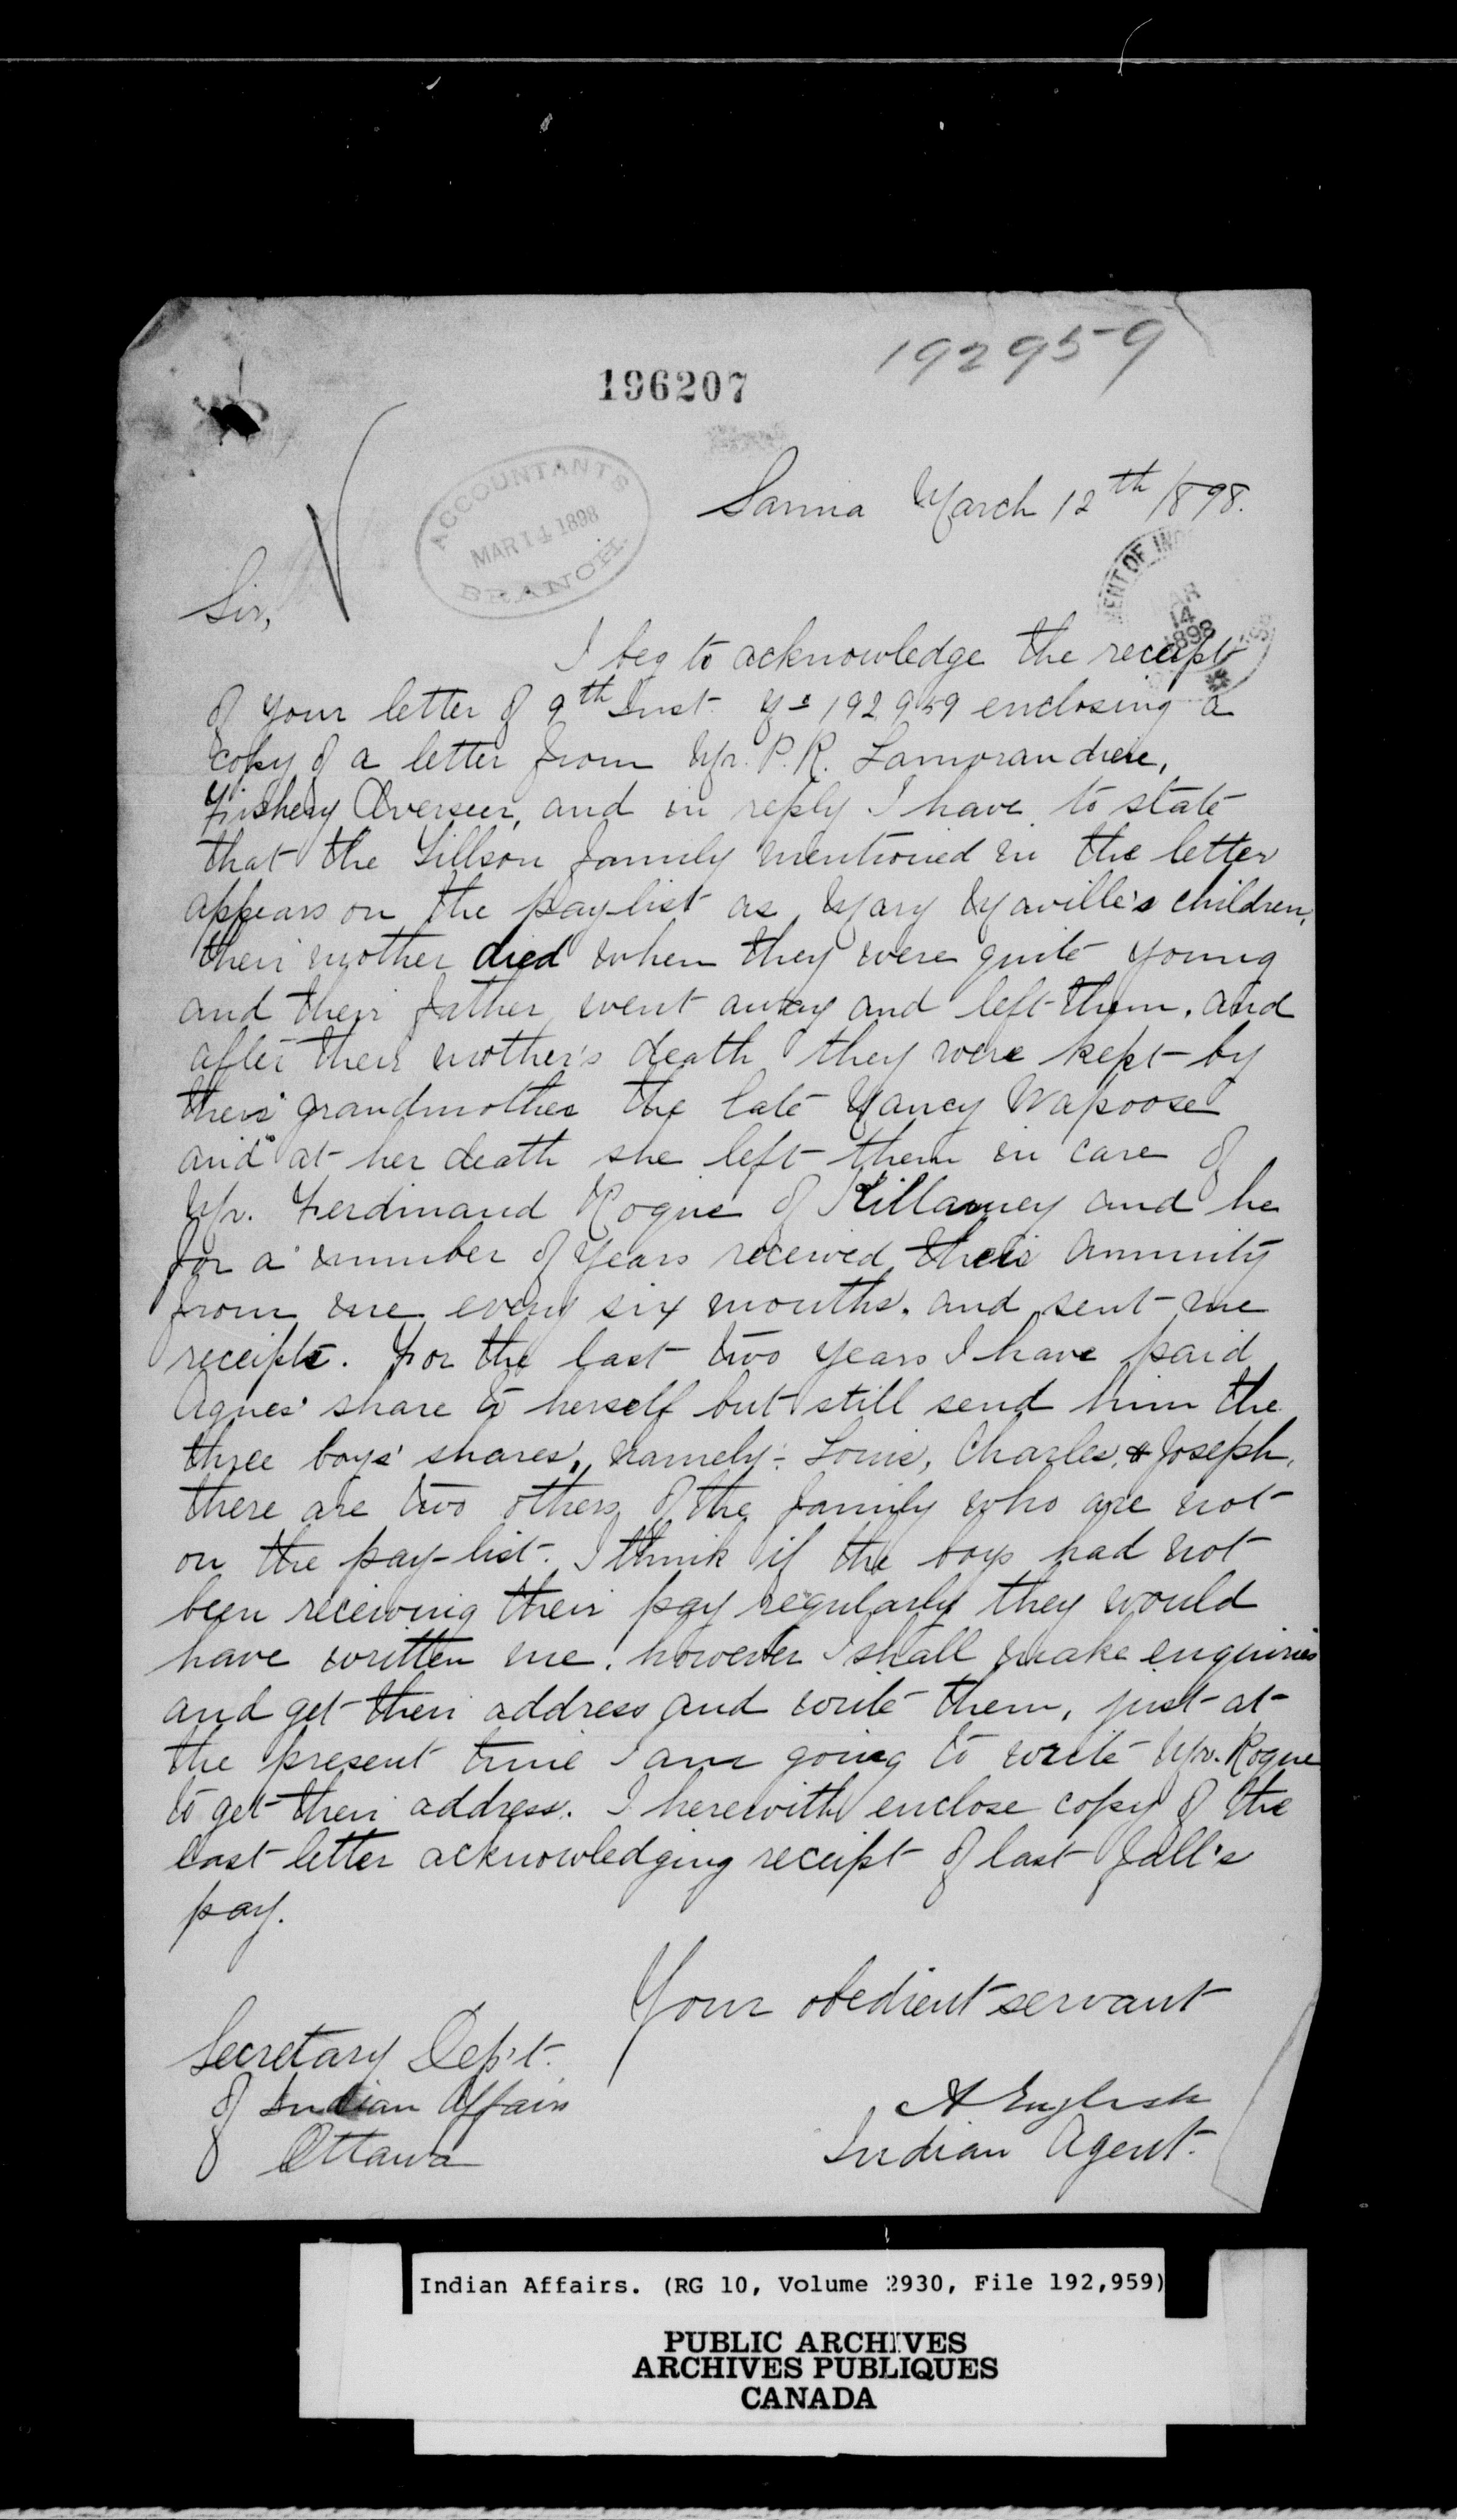 192959
196207
ACCOUNTANTS
MAR 14 1898
BRANCH.
Sarnia March 12th 1898.
MAR
14
1898
Sir,
I beg to acknowledge the receipt
of your letter of 9th Inst. No 192959 enclosing a
copy of a letter from Mr. P.R. Lamorandiere,
Fishery Overseer, and in reply I have to state
that the Tillson family mentioned in the letter
appears on the pay-list as Mary Maville's children,
their mother died when they were quite young
and their father went away and left them, and
after their mother's death they were kept by
their grandmother the late Nancy Wapoose
and at her death she left them in care of
Mr. Ferdinand Roque of Killarney and he
for a number of years received their annuity
from me every six months, and sent me
receipts. For the last two years I have paid
Agnes' share to herself but still send him the
three boys' shares, namely:- Louis, Charles, & Joseph,
there are two others of the family who are not
on the pay-list. I think if the boys had not
been receiving their pay regularly they would
have written me, however I shall make enquiries
and get their address and write them, just at
the present time I am going to write Mr. Roque
to get their address. I herewith enclose copy of the
last letter acknowledging receipt of last fall's
pay.
Your obedient servant
A English
Indian Agent.
Secretary Dep't.
of Indian Affairs
Ottawa
Indian Affairs. (RG 10, Volume 2930, File 192,959)
PUBLIC ARCHIVES
ARCHIVES PUBLIQUES
CANADA